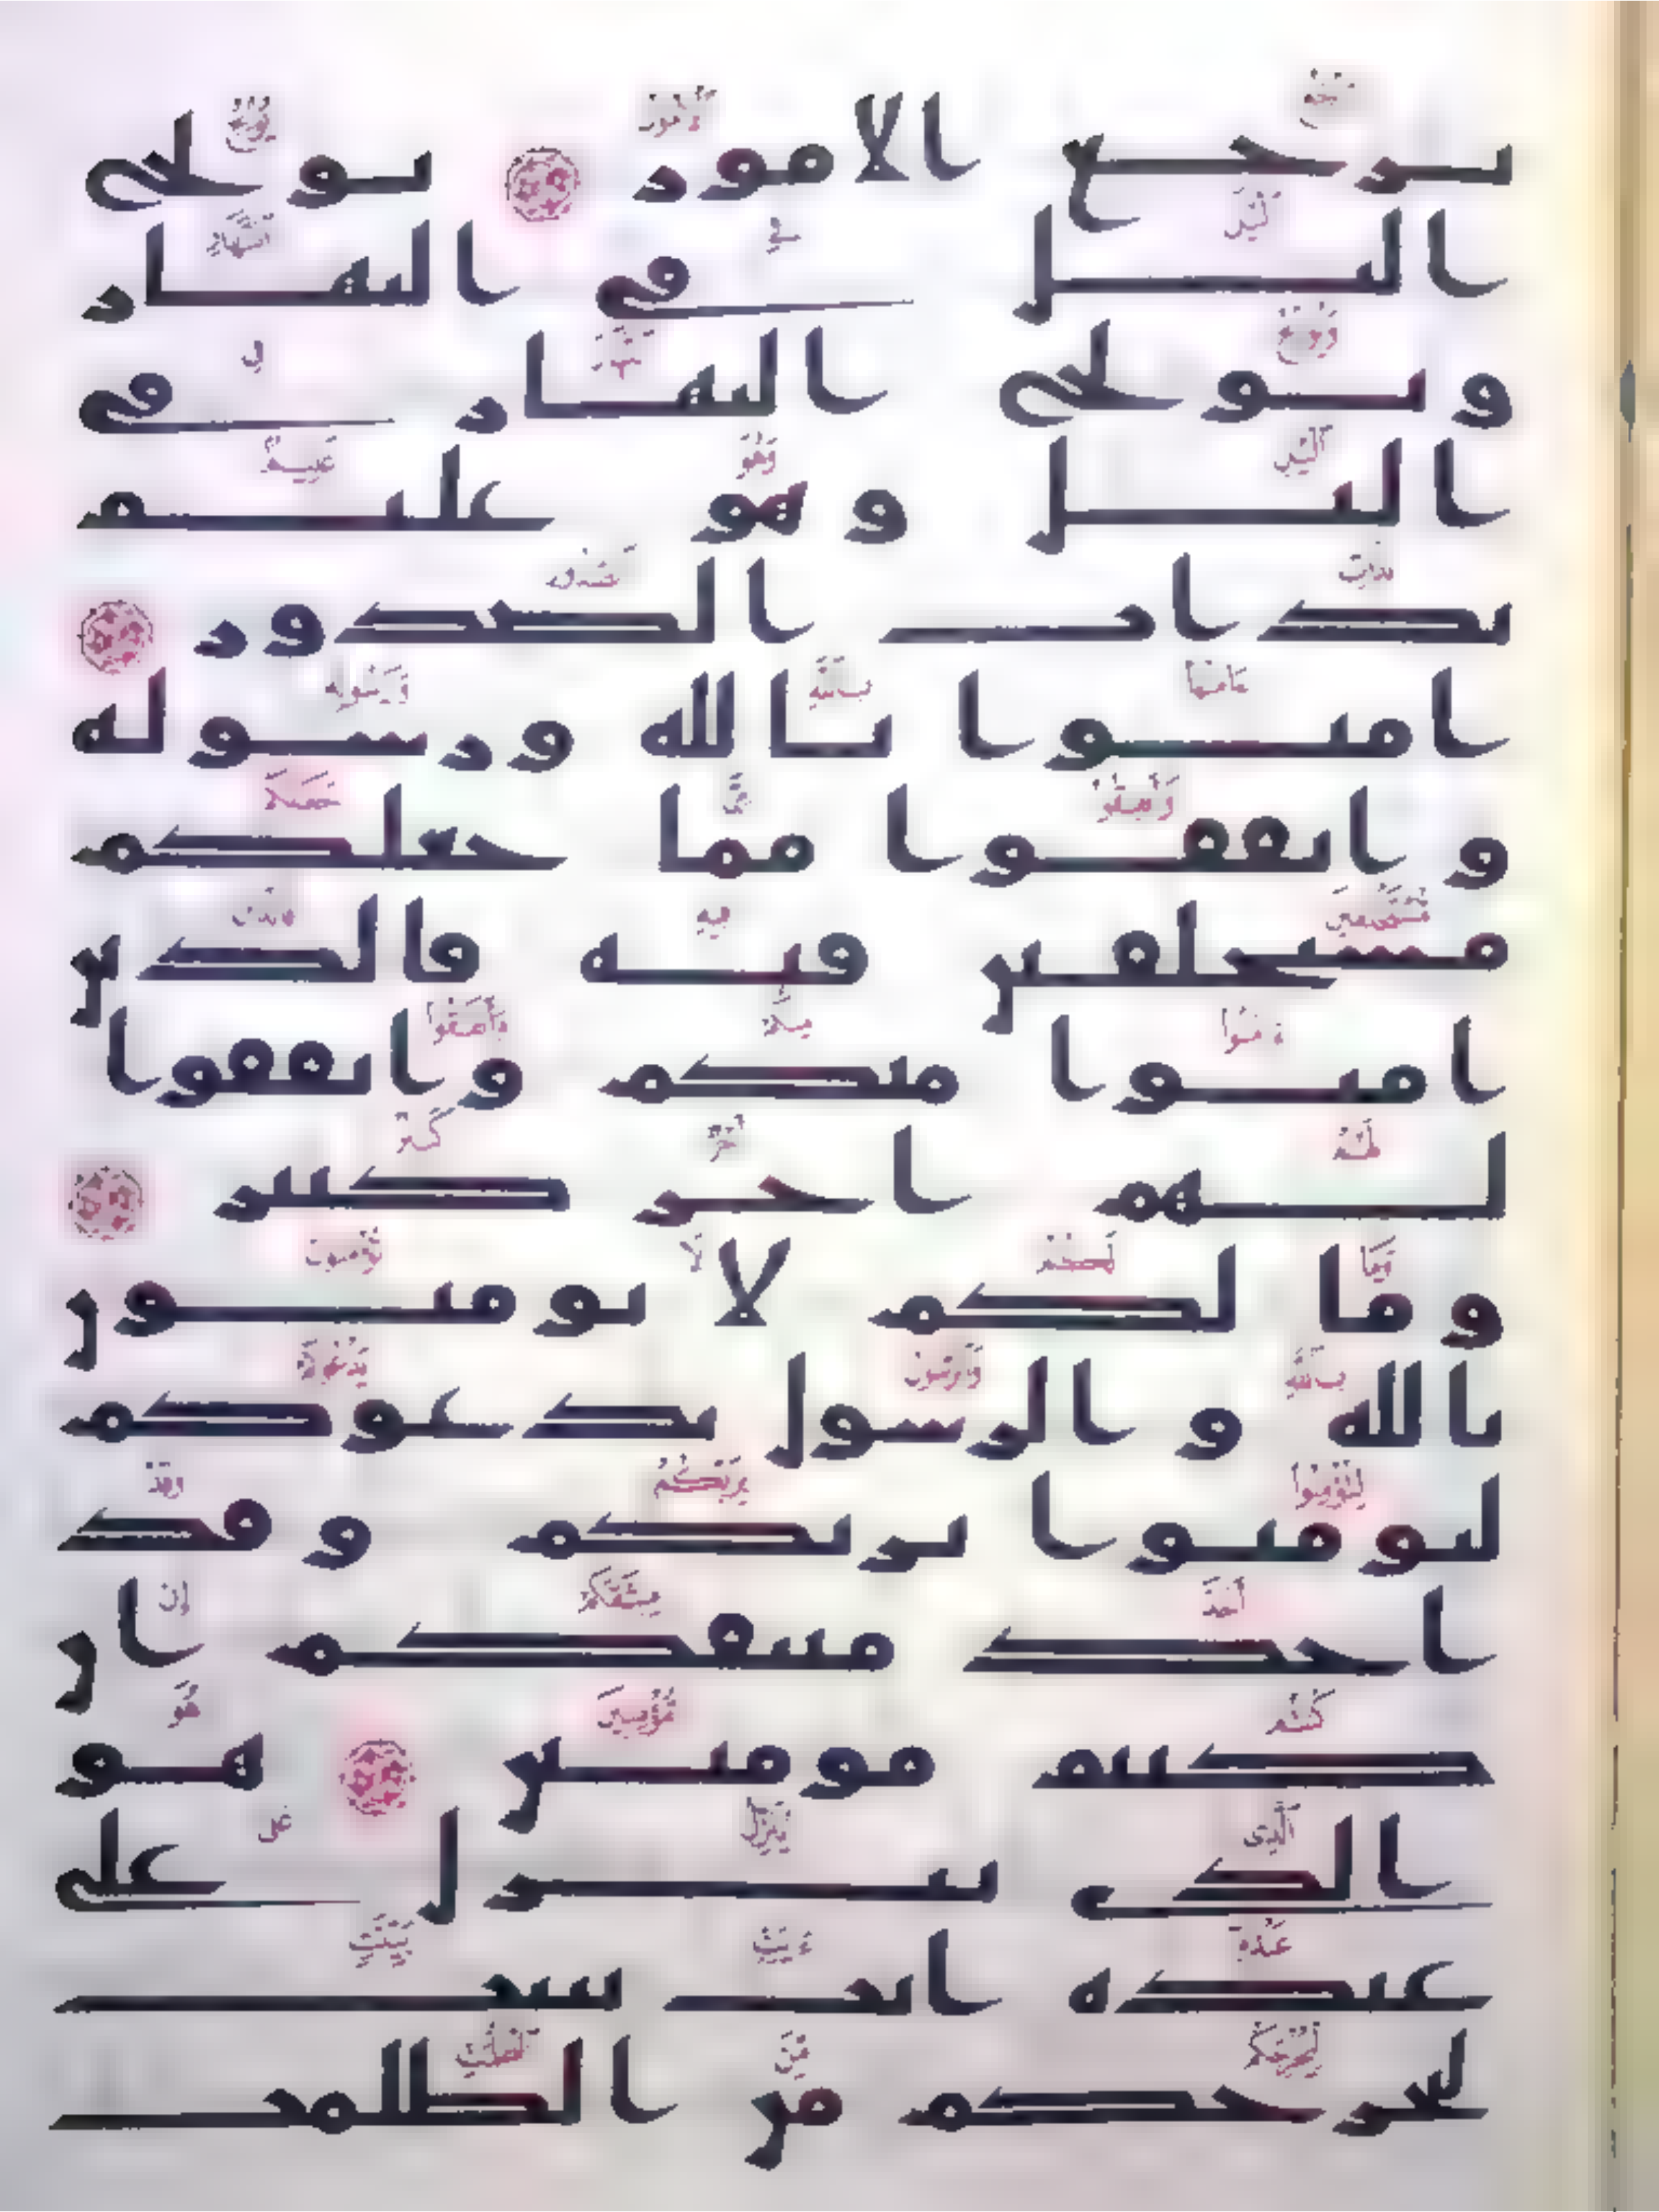 ترجع الامور يولج
اليل في النهار
ويولج النهار في
اليل و هو عليم
بذات الصدور
امنوا بالله ورسوله
وانفقوا مما جعلكم
مستخلفين فيه فالذين
امنوا منكم وانفقوا
لهم اجر كبير
وما لكم لا تومنون
بالله والرسول يدعوكم
لتومنوا بربكم وقد
اخذ ميثقكم ان
كنتم مومنين هو
الذي ينزل على
عبده ايت بينت
ليخرجكم من الظلمت